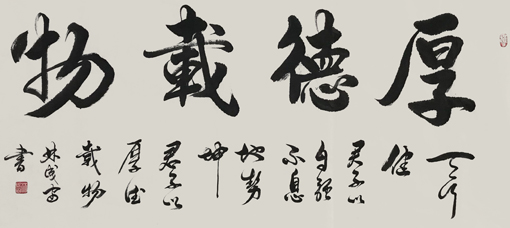 厚德載物
天行
健
君子以
自强
不息
地勢
坤
君子以
厚德
載物
林
書